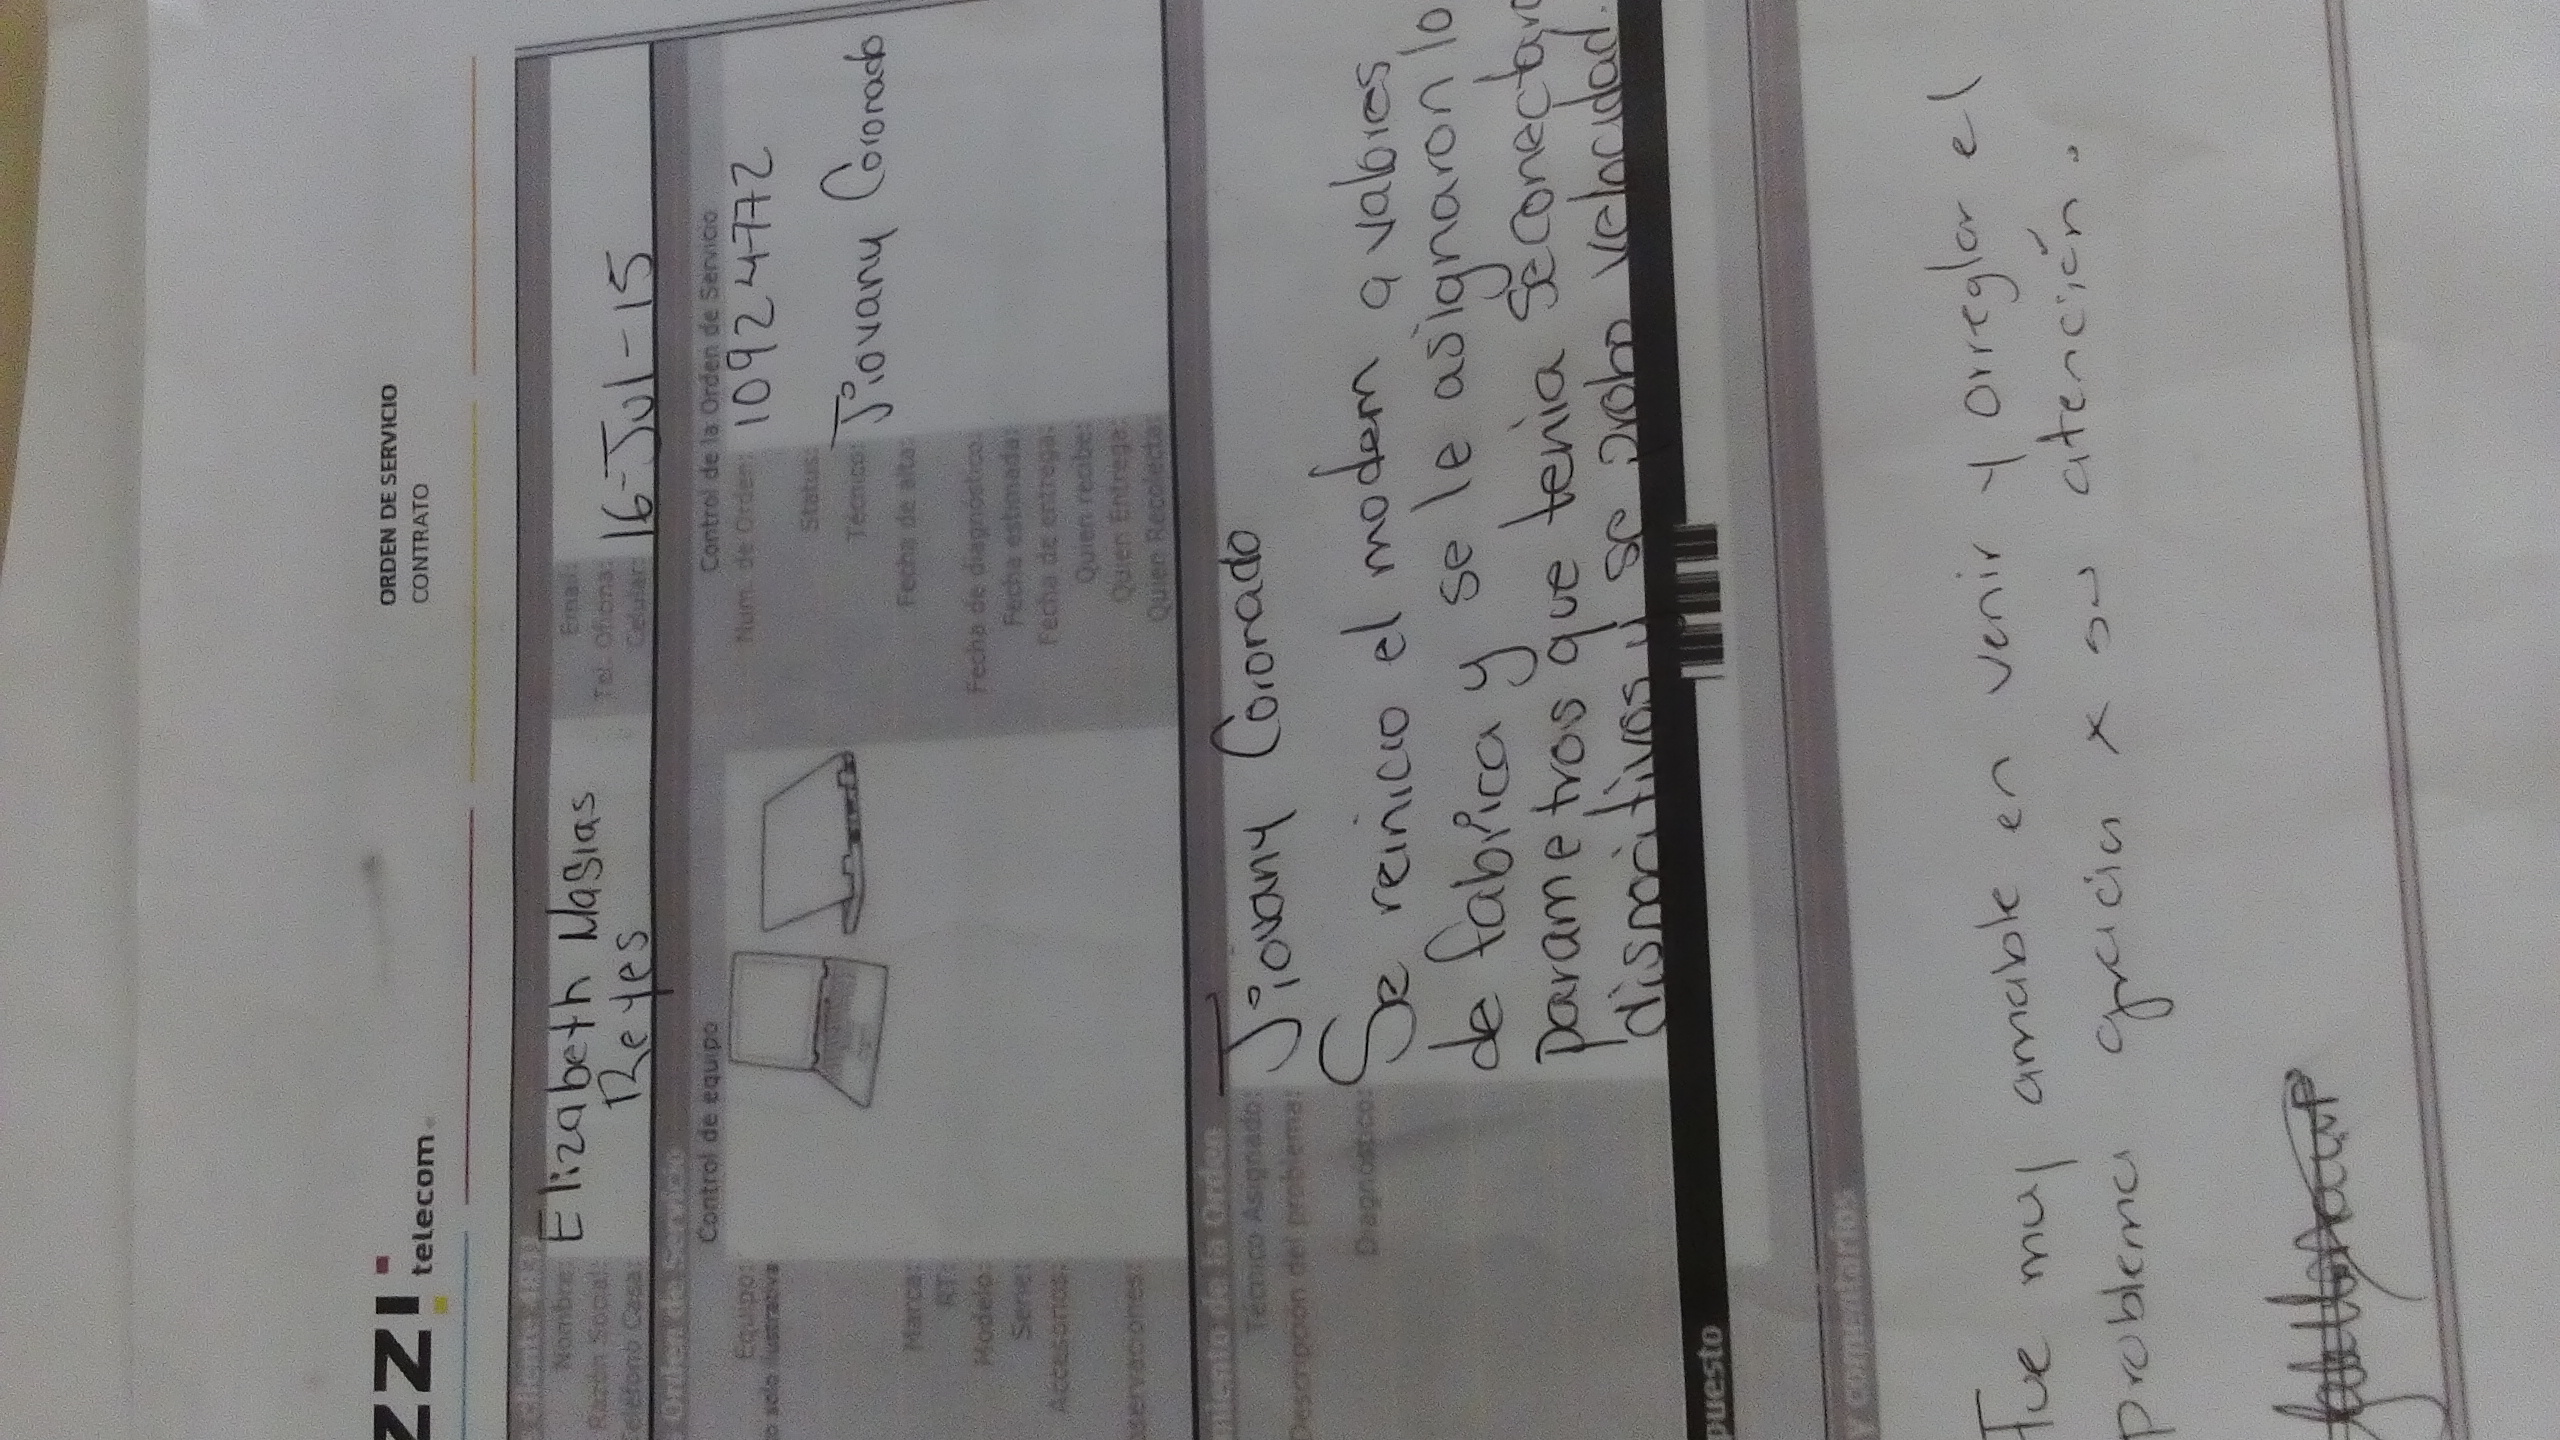 ZZ! telecom
ORDEN DE SERVICIO
CONTRATO
cliente 4831
Nombre: Elizabeth Masias
Razón Social: Reyes
Teléfono Casa:
Email:
Tel. Oficina:
Celular: 16-Jul-15
Orden de Servicio
Control de equipo
Equipo:
solo ilustrativa
Marca:
RT:
Modelo:
Serie:
Accesorios:
bservaciones:
Control de la Orden de Servicio
Num. de Orden: 10924772
Status:
Técnico: Jiovany Coronado
Fecha de alta:
Fecha de diagnóstico:
Fecha estimada:
Fecha de entrega:
Quien recibe:
Quien Entrega:
Quien Recolecta:
miento de la Orden
Técnico Asignado: Jiovany Coronado
Descripción del problema:
Diagnóstico: Se reinicio el modem a valores
de fabrica y se le asignaron lo
parametros que tenia se conectaro
dispocitivos y se probo velocidad.
puesto
y comentarios
Fue muy amable en venir y arreglar el
problema gracias x su atención.